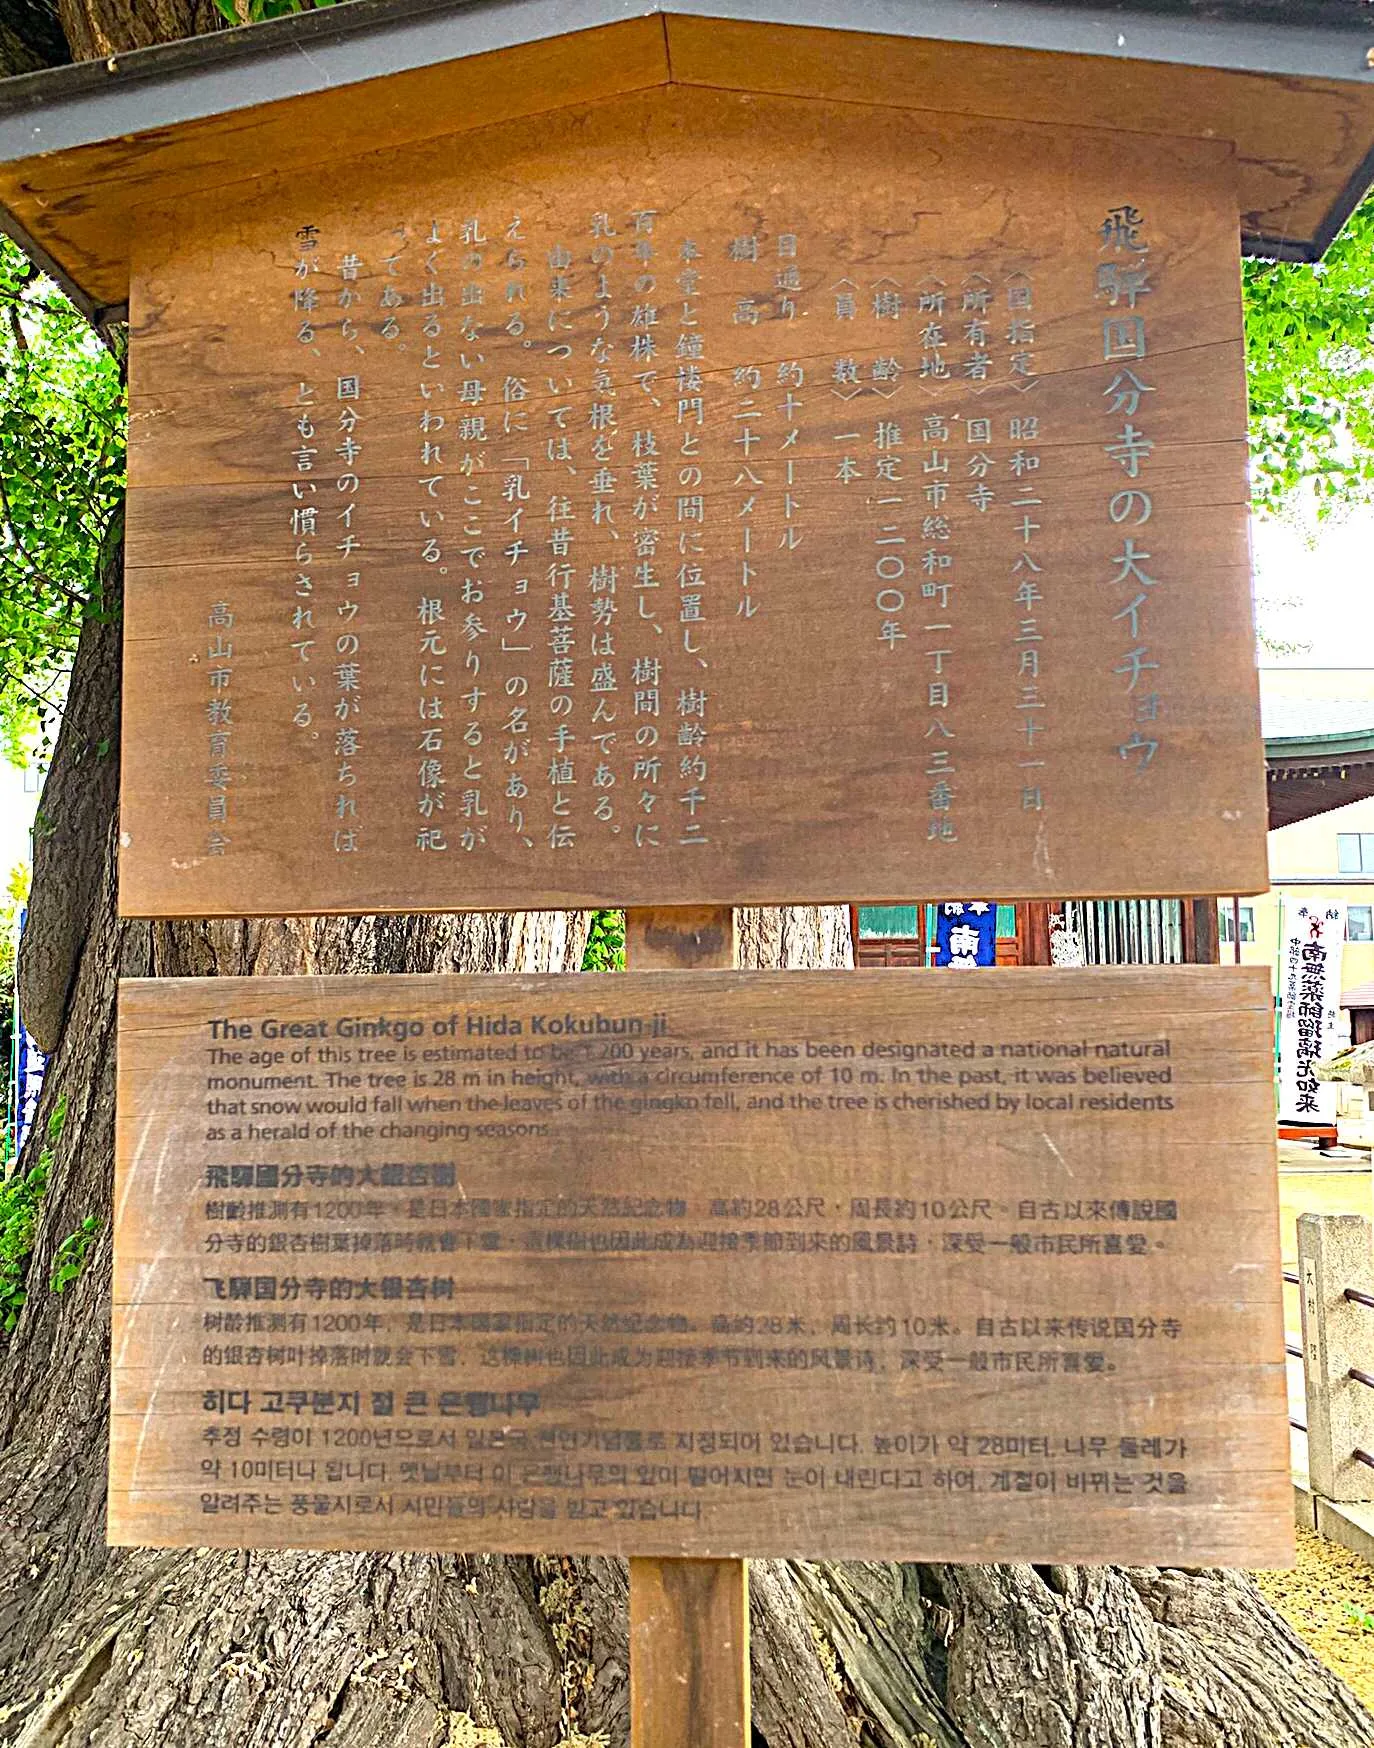 飛騨国分寺の大イチョウ
〈国指定〉 昭和二十八年三月三十一日
〈所有者〉 国分寺
〈所在地〉 高山市総和町一丁目八三番地
〈樹 齢〉 推定一二〇〇年
〈員 数〉 一本
目通り 約十メートル
樹 高 約二十八メートル
本堂と鐘楼門との間に位置し、樹齢約千二
百年の雄株で、枝葉が密生し、樹間の所々に
乳のような気根を垂れ、樹勢は盛んである。
由来については、往昔行基菩薩の手植と伝
えられる。俗に「乳イチョウ」の名があり、
乳の出ない母親がここでお参りすると乳が
よく出るといわれている。根元には石像が祀
ってある。
昔から、国分寺のイチョウの葉が落ちれば
雪が降る、とも言い慣らされている。
高山市教育委員会
The Great Ginkgo of Hida Kokubun-ji
The age of this tree is estimated to be 1,200 years, and it has been designated a national natural
monument. The tree is 28 m in height, with a circumference of 10 m. In the past, it was believed
that snow would fall when the leaves of the gingko fell, and the tree is cherished by local residents
as a herald of the changing seasons.
飛驒國分寺的大銀杏樹
樹齡推測有1200年，是日本國家指定的天然紀念物。高約28公尺，周長約10公尺。自古以來傳說國
分寺的銀杏樹葉掉落時就會下雪，這棵樹也因此成為迎接季節到來的風景詩，深受一般市民所喜愛。
飞騨国分寺的大银杏树
树龄推测有1200年，是日本国家指定的天然纪念物。高约28米，周长约10米。自古以来传说国分寺
的银杏树叶掉落时就会下雪，这棵树也因此成为迎接季节到来的风景诗，深受一般市民所喜爱。
히다 고쿠분지 절 큰 은행나무
추정 수령이 1200년으로서 일본국 천연기념물로 지정되어 있습니다. 높이가 약 28미터, 나무 둘레가
약 10미터나 됩니다. 옛날부터 이 은행나무의 잎이 떨어지면 눈이 내린다고 하여, 계절이 바뀌는 것을
알려주는 풍물시로서 시민들의 사랑을 받고 있습니다.
南
奉 納
南無薬師瑠璃光如来